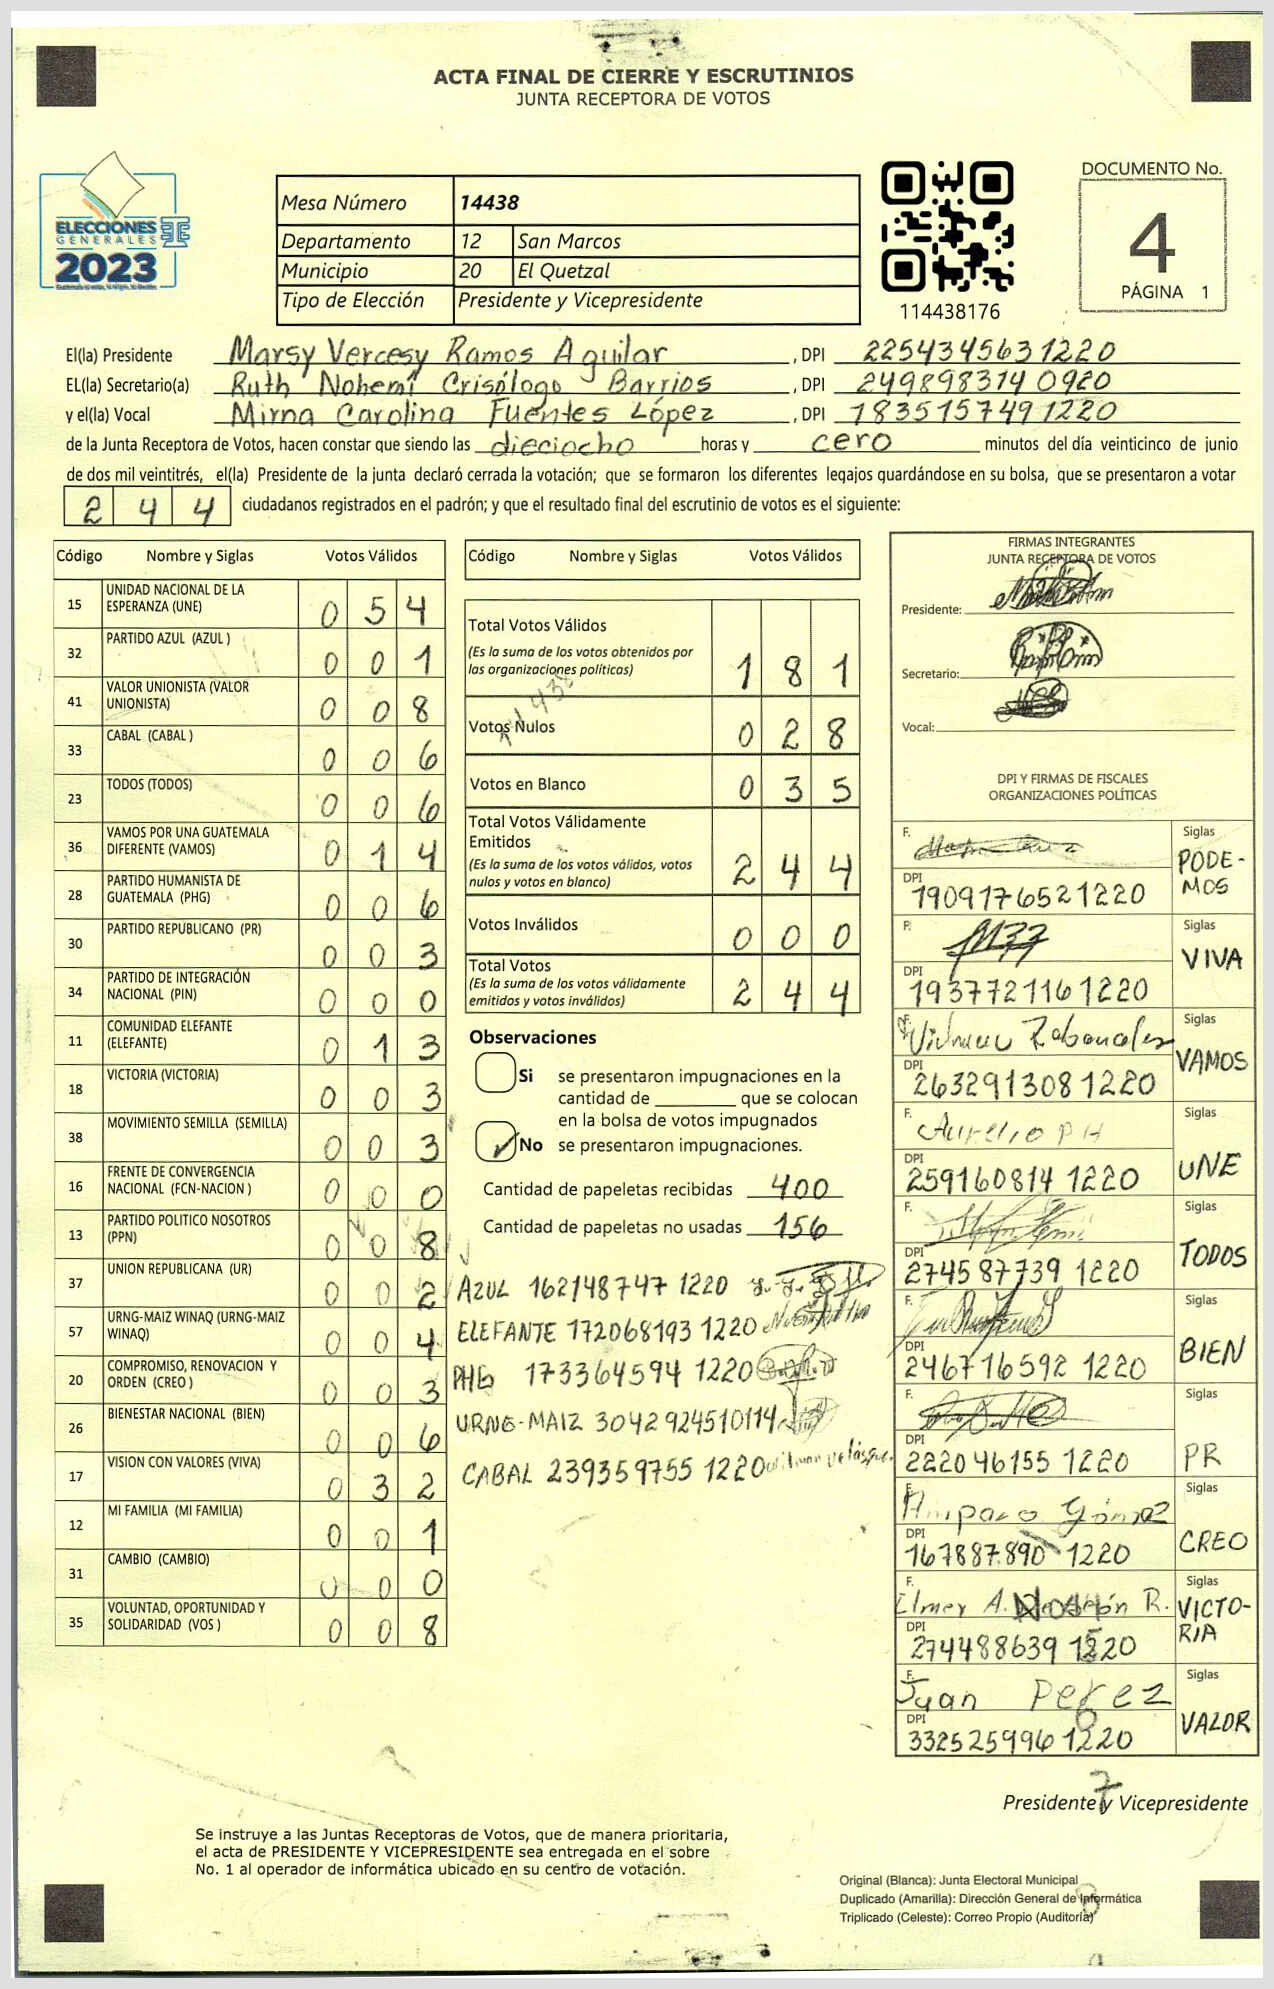 ACTA FINAL DE CIERRE Y ESCRUTINIOS
JUNTA RECEPTORA DE VOTOS
ELECCIONES
GENERALES
2023
Mesa Número 14438
Departamento 12 San Marcos
Municipio 20 El Quetzal
Tipo de Elección Presidente y Vicepresidente
114438176
DOCUMENTO No.
4
PÁGINA 1
El(la) Presidente Marsy Vercesy Ramos Aguilar , DPI 2254345631220
EL(la) Secretario(a) Ruth Nohemí Crisólogo Barrios , DPI 249898314 0920
y el(la) Vocal Mirna Carolina Fuentes López , DPI 183515749 1220
de la Junta Receptora de Votos, hacen constar que siendo las dieciocho horas y cero minutos del día veinticinco de junio
de dos mil veintitrés, el(la) Presidente de la junta declaró cerrada la votación; que se formaron los diferentes legajos guardándose en su bolsa, que se presentaron a votar
2 4 4 ciudadanos registrados en el padrón; y que el resultado final del escrutinio de votos es el siguiente:
Código Nombre y Siglas Votos Válidos
15 UNIDAD NACIONAL DE LA
ESPERANZA (UNE) 0 5 4
32 PARTIDO AZUL (AZUL ) 0 0 1
41 VALOR UNIONISTA (VALOR
UNIONISTA) 0 0 8
33 CABAL (CABAL ) 0 0 6
23 TODOS (TODOS) 0 0 6
36 VAMOS POR UNA GUATEMALA
DIFERENTE (VAMOS) 0 1 4
28 PARTIDO HUMANISTA DE
GUATEMALA (PHG) 0 0 6
30 PARTIDO REPUBLICANO (PR) 0 0 3
34 PARTIDO DE INTEGRACIÓN
NACIONAL (PIN) 0 0 0
11 COMUNIDAD ELEFANTE
(ELEFANTE) 0 1 3
18 VICTORIA (VICTORIA) 0 0 3
38 MOVIMIENTO SEMILLA (SEMILLA) 0 0 3
16 FRENTE DE CONVERGENCIA
NACIONAL (FCN-NACION ) 0 0 0
13 PARTIDO POLITICO NOSOTROS
(PPN) 0 0 8
37 UNION REPUBLICANA (UR) 0 0 2
57 URNG-MAIZ WINAQ (URNG-MAIZ
WINAQ) 0 0 4
20 COMPROMISO, RENOVACION Y
ORDEN (CREO ) 0 0 3
26 BIENESTAR NACIONAL (BIEN) 0 0 6
17 VISION CON VALORES (VIVA) 0 3 2
12 MI FAMILIA (MI FAMILIA) 0 0 1
31 CAMBIO (CAMBIO) 0 0 0
35 VOLUNTAD, OPORTUNIDAD Y
SOLIDARIDAD (VOS ) 0 0 8
Código Nombre y Siglas Votos Válidos
Total Votos Válidos
(Es la suma de los votos obtenidos por
las organizaciones políticas) 1 8 1
Votos Nulos 0 2 8
Votos en Blanco 0 3 5
Total Votos Válidamente
Emitidos
(Es la suma de los votos válidos, votos
nulos y votos en blanco) 2 4 4
Votos Inválidos 0 0 0
Total Votos
(Es la suma de los votos válidamente
emitidos y votos inválidos) 2 4 4
Observaciones
Si se presentaron impugnaciones en la
cantidad de ________ que se colocan
en la bolsa de votos impugnados
No se presentaron impugnaciones.
Cantidad de papeletas recibidas 400
Cantidad de papeletas no usadas 156
AZUL 162148747 1220
ELEFANTE 172068193 1220
PHG 173364594 1220
URNG-MAIZ 3042 924510114
CABAL 239359755 1220
FIRMAS INTEGRANTES
JUNTA RECEPTORA DE VOTOS
Presidente:
Secretario:
Vocal:
DPI Y FIRMAS DE FISCALES
ORGANIZACIONES POLÍTICAS
F. Siglas
PODE-
MOS
DPI
1909176521220
F. Siglas
VIVA
DPI
1937721161220
F. Siglas
VAMOS
DPI
2632913081220
F. Aurelio P H Siglas
UNE
DPI
259160814 1220
F. Siglas
TODOS
DPI
274587739 1220
F. Siglas
BIEN
DPI
246716592 1220
F. Siglas
PR
DPI
222046155 1220
F. Amparo Gómez Siglas
CREO
DPI
167887890 1220
F. Elmer A. R. Siglas
VICTO-
RIA
DPI
274488639 1220
F. Juan Perez Siglas
VALOR
DPI
332525996 1220
Presidente y Vicepresidente
Se instruye a las Juntas Receptoras de Votos, que de manera prioritaria,
el acta de PRESIDENTE Y VICEPRESIDENTE sea entregada en el sobre
No. 1 al operador de informática ubicado en su centro de votación.
Original (Blanca): Junta Electoral Municipal
Duplicado (Amarilla): Dirección General de Informática
Triplicado (Celeste): Correo Propio (Auditoría)